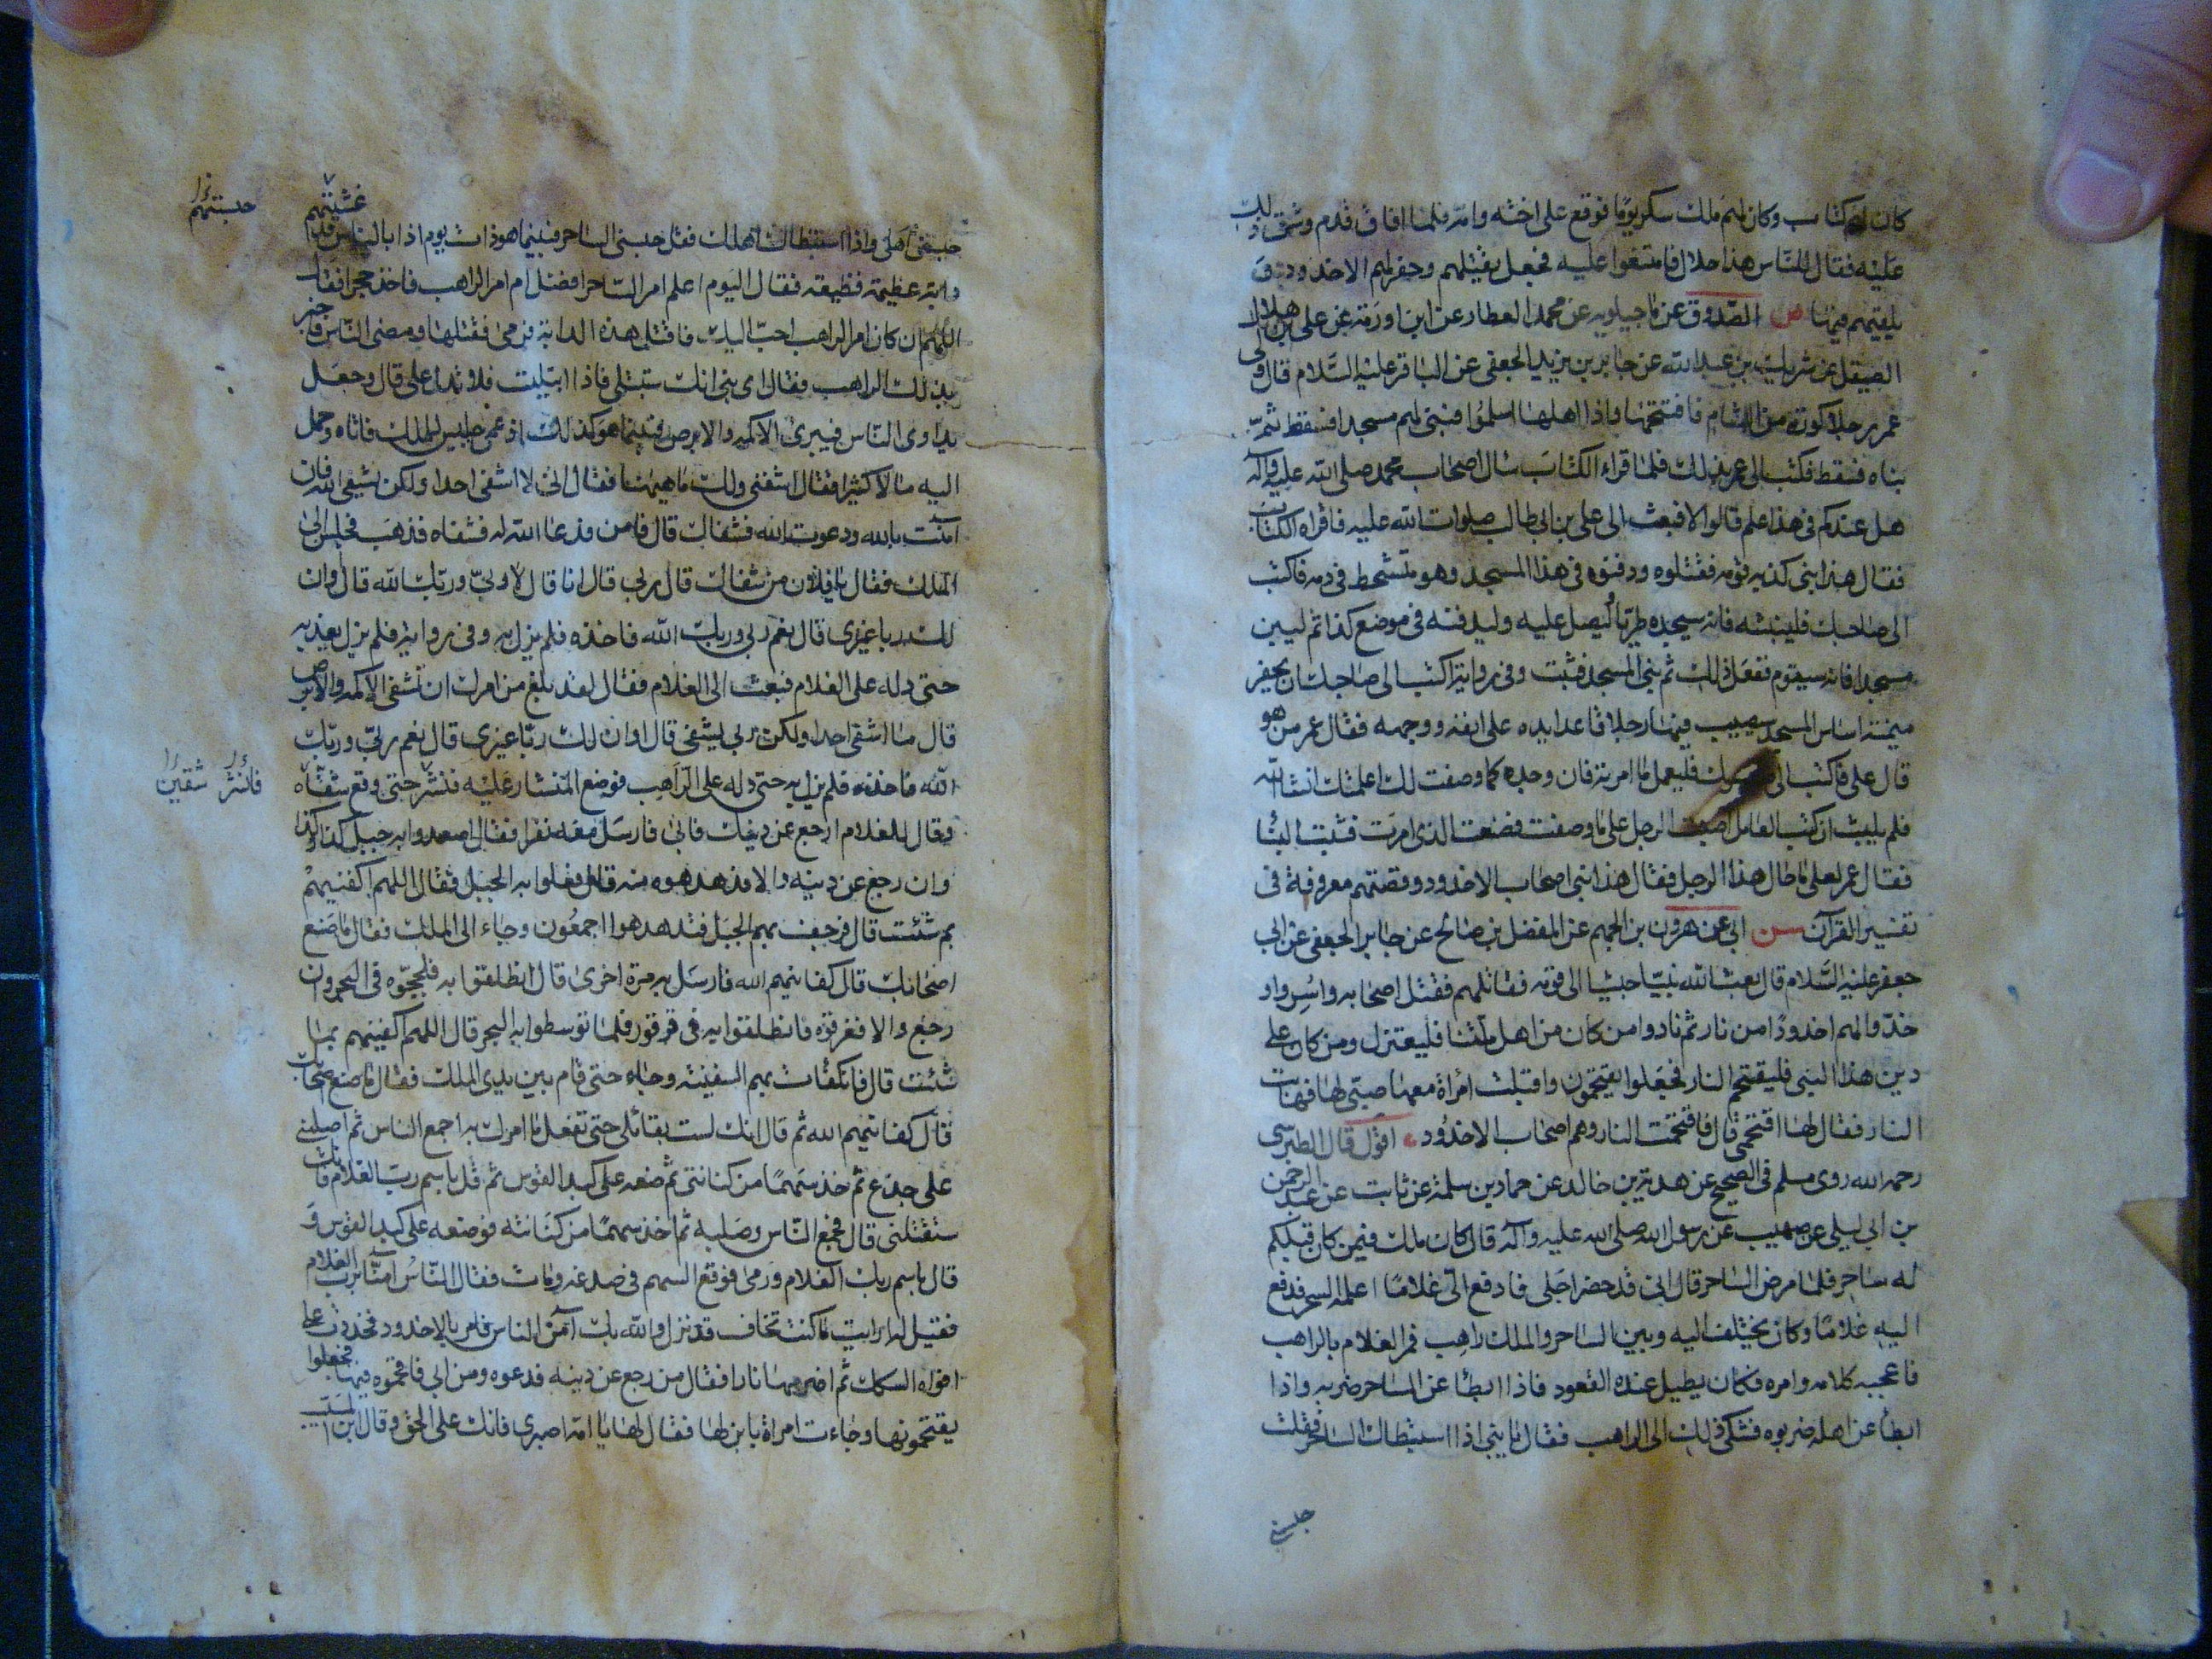 كان لهم كتاب وكان لهم ملك سكر يوما فوقع على اخته وامه فلما افاق قدم وشق ذلك
عليه فقال للناس هذا حلال فامتنعوا عليه فجعل يقتلهم وحفر لهم الاخدود ق
يلقيهم فيها ص الصدوق عن ماجيلويه عن محمد العطار عن ابن اورمة عن علي بن هلال
الصيقل عن شريك بن عبد الله عن جابر بن يزيد الجعفى عن الباقر عليه السلام قال ولى
عمر رجلا كورة من الشام فافتتحها واذا اهلها اسلموا فبنى لهم مسجدا فسقط ثم
بناه فسقط فكتب الى عمر بذلك فلما قراء الكتاب سال اصحاب محمد صلى الله عليه وآله
هل عندكم فى هذا علم قالوا لا فبعث الى على بن ابى طالب صلوات الله عليه فاقراه الكتاب
فقال هذا نبى كذبه قومه فقتلوه ودفنوه فى هذا المسجد وهو متشحط فى دمه فاكتب
الى صاحبك فلينبشه فانه سيجده طريا ليصل عليه وليدفنه فى موضع كذا ثم ليبن
مسجدا فانه سيقوم ففعل ذلك ثم بنى المسجد فثبت وفى رواية اكتب الى صاحبك ان يحفر
ميمنة اساس المسجد سيصيب فيها رجلا قاعدا يده على انفه ووجهه فقال عمر من هو
قال على فاكتب الى صاحبك فليعمل ما امرته فان وجده كما وصفت لك اعلمتك انشاالله
فلم يلبث ان كتب العامل اصبت الرجل على ما وصفت فصنعت الذى امرت فثبت البنا
فقال عمر لعلى ما حال هذا الرجل فقال هذا نبى اصحاب الاخدود وقصتهم معروفة فى
تفسير القرآن سن ابى عن هرون بن الجهم عن المفضل بن صالح عن جابر الجعفى عن ابى
جعفر عليه السلام قال بعث الله نبيا حبشيا الى قومه فقاتلهم فقتل اصحابه واسروا و
خدوا لهم اخدودا من نار ثم نادوا من كان من اهل ملتنا فليعتزل ومن كان على
دين هذا النبى فليقتحم النار فجعلوا يقتحمون واقبلت امراة معها صبى لها فهابت
النار فقال لها اقتحمى قال فاقتحمت النار وهم اصحاب الاخدود اقول قال الطبرسى
رحمه الله روى مسلم فى الصحيح عن هدبة بن خالد عن حماد بن سلمة عن ثابت عن عبد الرحمن
بن ابى ليلى عن صهيب عن رسول الله صلى الله عليه وآله قال كان ملك فيمن كان قبلكم
له ساحر فلما مرض الساحر قال انى قد حضر اجلى فادفع الى غلاما اعلمه السحر فدفع
اليه غلاما وكان يختلف اليه وبين الساحر والملك راهب فمر الغلام بالراهب
فاعجبه كلامه وامره فكان يطيل عنده القعود فاذا ابطأ عن الساحر ضربه واذا
ابطأ عن اهله ضربوه فشكى ذلك الى الراهب فقال يا بنى اذا استبطاك الساحر فقل
حبسنى
حبستهم
غشيتهم
حبسنى اهلى واذا استبطاك اهلك فقل حبسنى الساحر فبينما هو ذات يوم اذا بالناس قد
دابة عظيمة فظيعة فقال اليوم اعلم امر الساحر افضل ام امر الراهب فاخذ حجرا فقال
اللهم ان كان امر الراهب احب اليك فاقتل هذه الدابة فرمى فقتلها ومضى الناس فاخبر
بذلك الراهب فقال اى بنى انك ستبتلى فاذا ابتليت فلا تدل على قال وجعل
يداوى الناس فيبرئ الاكمه والابرص فبينما هو كذلك اذ عمى جليس للملك فاتاه وحمل
اليه مالا كثيرا فقال اشفنى ولك ما هيهنا فقال انى لا اشفى احدا ولكن يشفى الله فان
آمنت بالله ودعوت الله فشفاك قال فامن فدعا الله له فشفاه فذهب فجلس الى
الملك فقال يا فلان من شفاك قال ربى قال انا قال لا ربى وربك الله قال وان
لك ربا غيرى قال نعم ربى وربك الله فاخذه فلم يزل به وفى رواية فلم يزل يعذبه
حتى دله على الغلام فبعث الى الغلام فقال لقد بلغ من امرك ان تشفى الاكمه والابرص
قال ما اشفى احدا ولكن ربى يشفى قال اوان لك ربا غيرى قال نعم ربى وربك
الله فاخذه فلم يزل به حتى دله على الراهب فوضع المنشار عليه فنشر حتى وقع شقاه
فانشر شقين
وقال للغلام ارجع عن دينك فابى فارسل معه نفرا فقال اصعدوا به جبل كذا وكذا
فان رجع عن دينه والا فدهدهوه منه قال فعلوا به الجبل فقال اللهم اكفنيهم
بم شئت قال فرجف بهم الجبل فتدهدهوا اجمعون وجاء الى الملك فقال ما صنع
اصحابك قال كفانيهم الله فارسل به مرة اخرى قال انطلقوا به فلججوه فى البحر فان
رجع والا فغرقوه فانطلقوا به فى قرقور فلما توسطوا به البحر قال اللهم اكفنيهم بما
شئت قال فانكفأت بهم السفينة وجاء حتى قام بين يدى الملك فقال ما صنع اصحابك
قال كفانيهم الله ثم قال انك لست بقاتلى حتى تفعل ما امرك به اجمع الناس ثم اصلبنى
على جذع ثم خذ سهما من كنانتى ثم ضعه على كبد القوس ثم قل باسم رب الغلام فانك
ستقتلنى قال فجمع الناس وصلبه ثم اخذ سهما من كنانته فوضعه على كبد القوس و
قال باسم رب الغلام ورمى فوقع السهم فى صدغه ومات فقال الناس آمنا برب الغلام
فقيل له ارايت ما كنت تخاف قد نزل والله بك آمن الناس فامر بالاخدود فخددت على
افواه السكك ثم اضرمها نارا فقال من رجع عن دينه فدعوه ومن ابى فاقحموه فيها فجعلوا
يقتحمونها وجاءت امراة بابن لها فقال لها يا امه اصبرى فانك على الحق وقال ابن المسيب